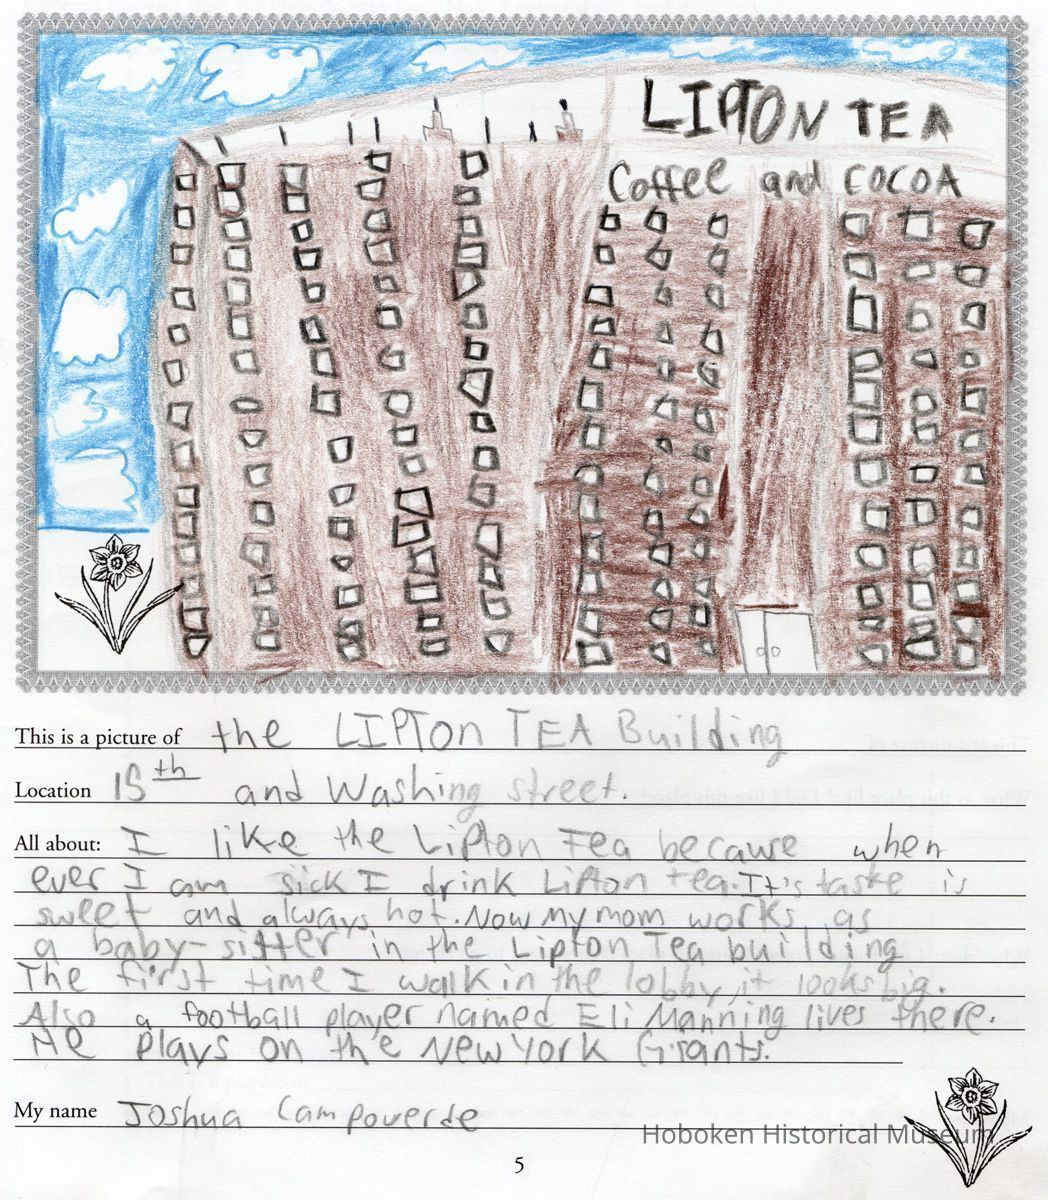 LIPTON TEA
Coffee and COCOA
This is a picture of the LIPTON TEA Building
Location 15th and Washing street.
All about: I like the Lipton Tea because when
ever I am sick I drink Lipton tea. It's taste is
sweet and always hot. Now my mom works as
a baby-sitter in the Lipton Tea building
The first time I walk in the lobby, it looks big.
Also a football player named Eli Manning lives there.
He plays on the New York Giants.
My name Joshua Campoverde
Hoboken Historical Museum
5